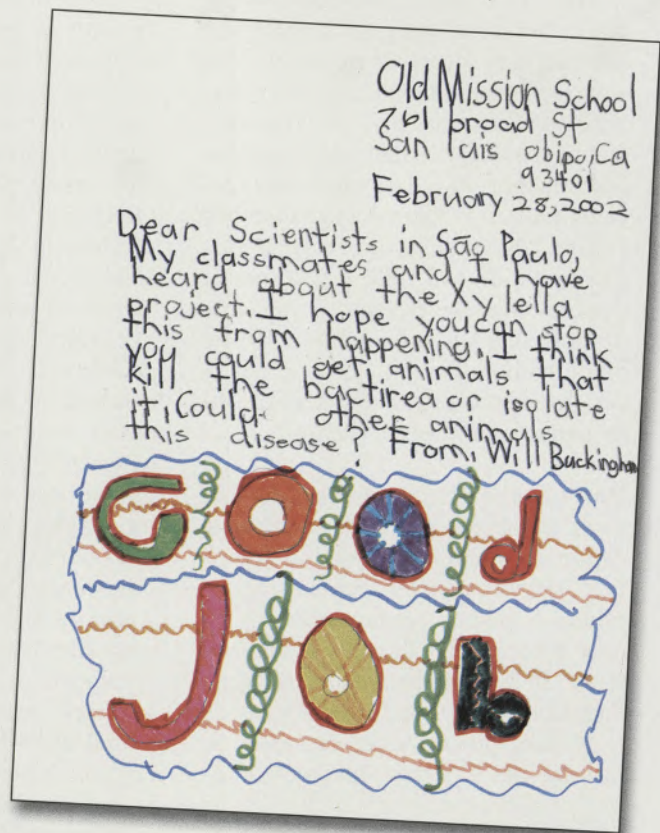 Old Mission School
761 broad St
San luis obipo, Ca
93401
February 28, 2002
Dear Scientists in São Paulo,
My classmates and I have
heard about the Xylella
project. I hope you can stop
this from happening. I think
you could get animals that
kill the bactirea or isolate
it. Could other animals
this disease? From, Will Buckingham
GOOd
JOb